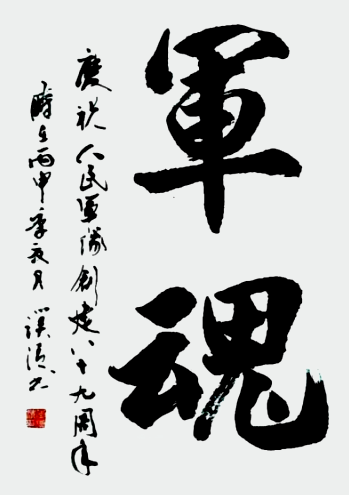 軍魂
慶祝人民軍隊創建八十九周年
時在丙申年夏月